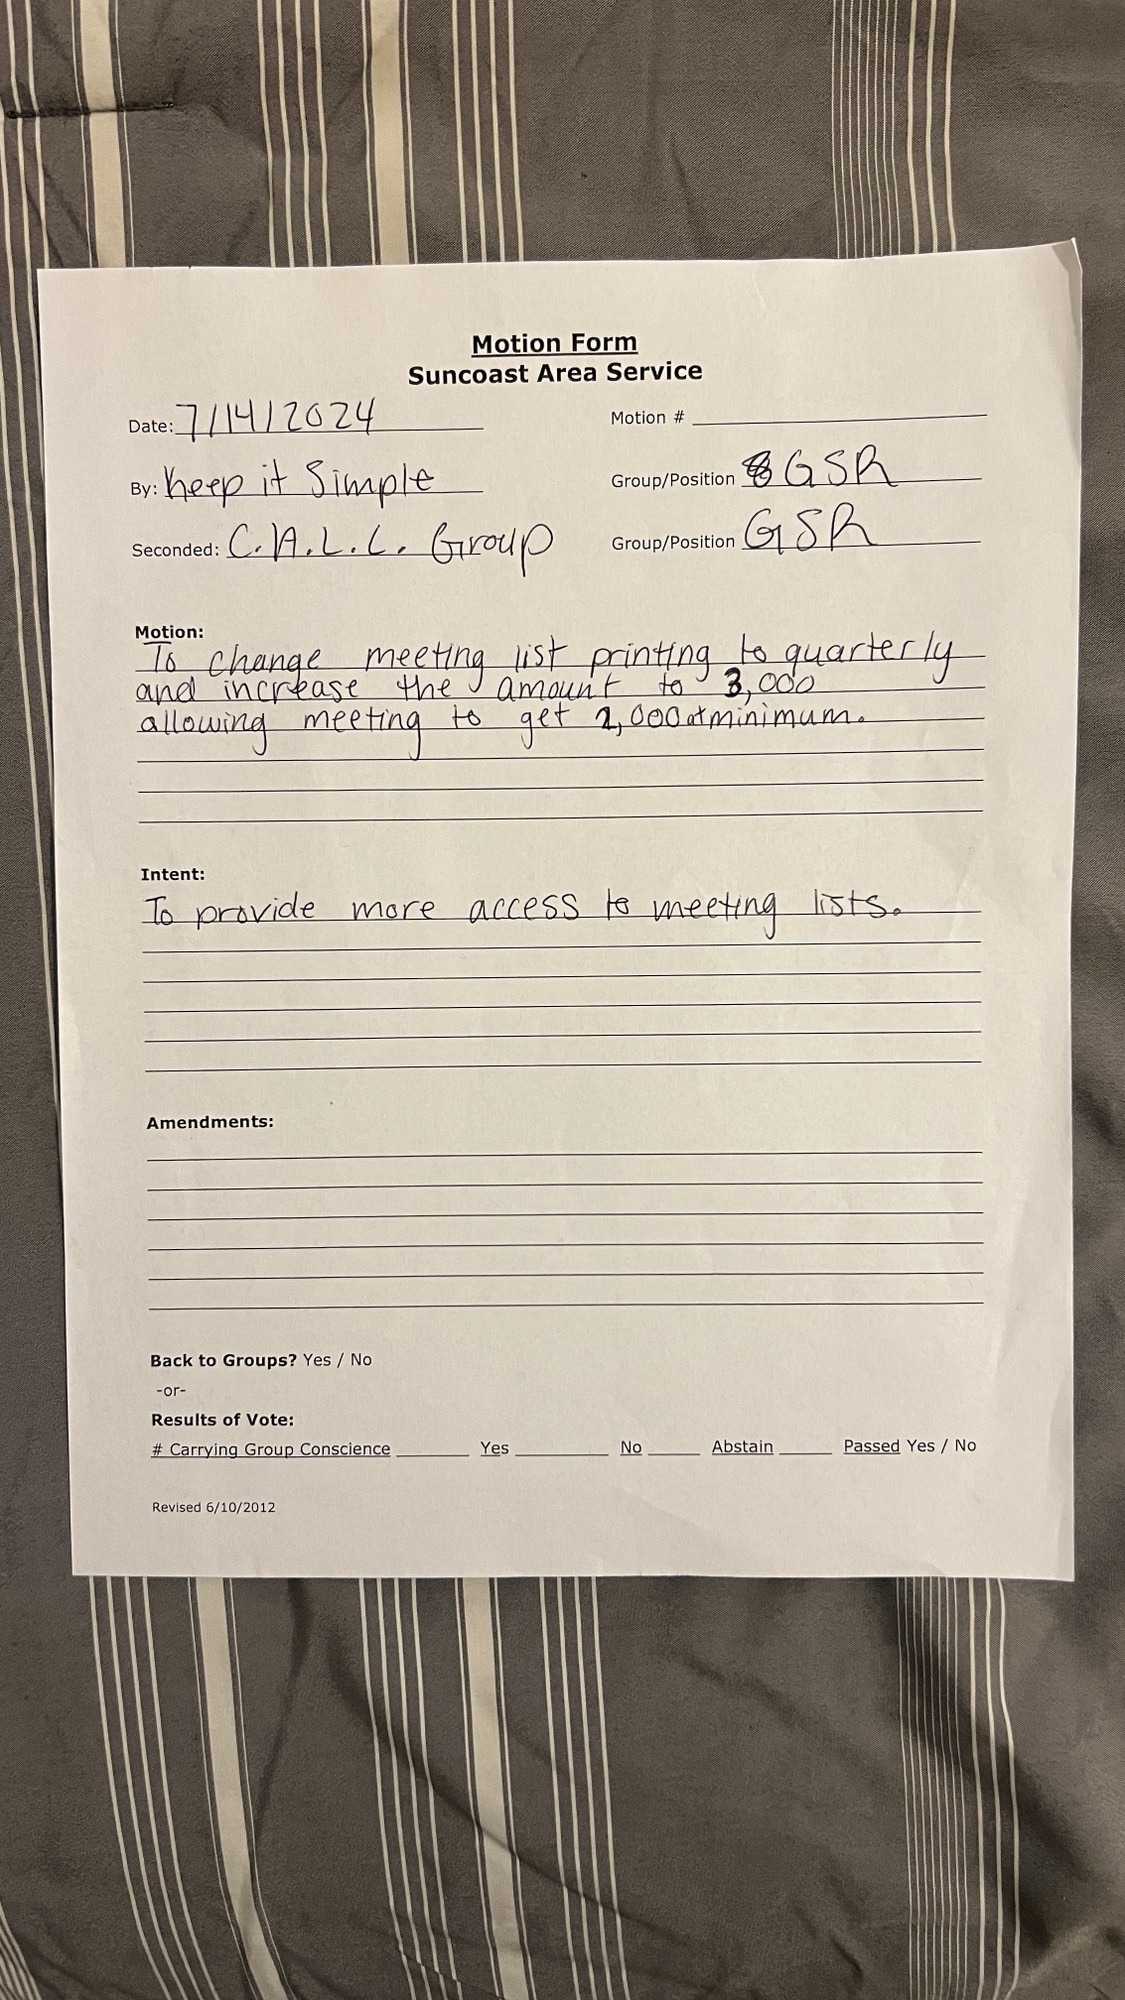 Motion Form
Suncoast Area Service
Date: 7/14/2024 Motion #
By: Keep it Simple Group/Position GSR
Seconded: C.A.L.L. Group Group/Position GSR
Motion:
To change meeting list printing to quarterly
and increase the amount to 3,000
allowing meeting to get 2,000 at minimum.
Intent:
To provide more access to meeting lists.
Amendments:
Back to Groups? Yes / No
-or-
Results of Vote:
# Carrying Group Conscience Yes No Abstain Passed Yes / No
Revised 6/10/2012